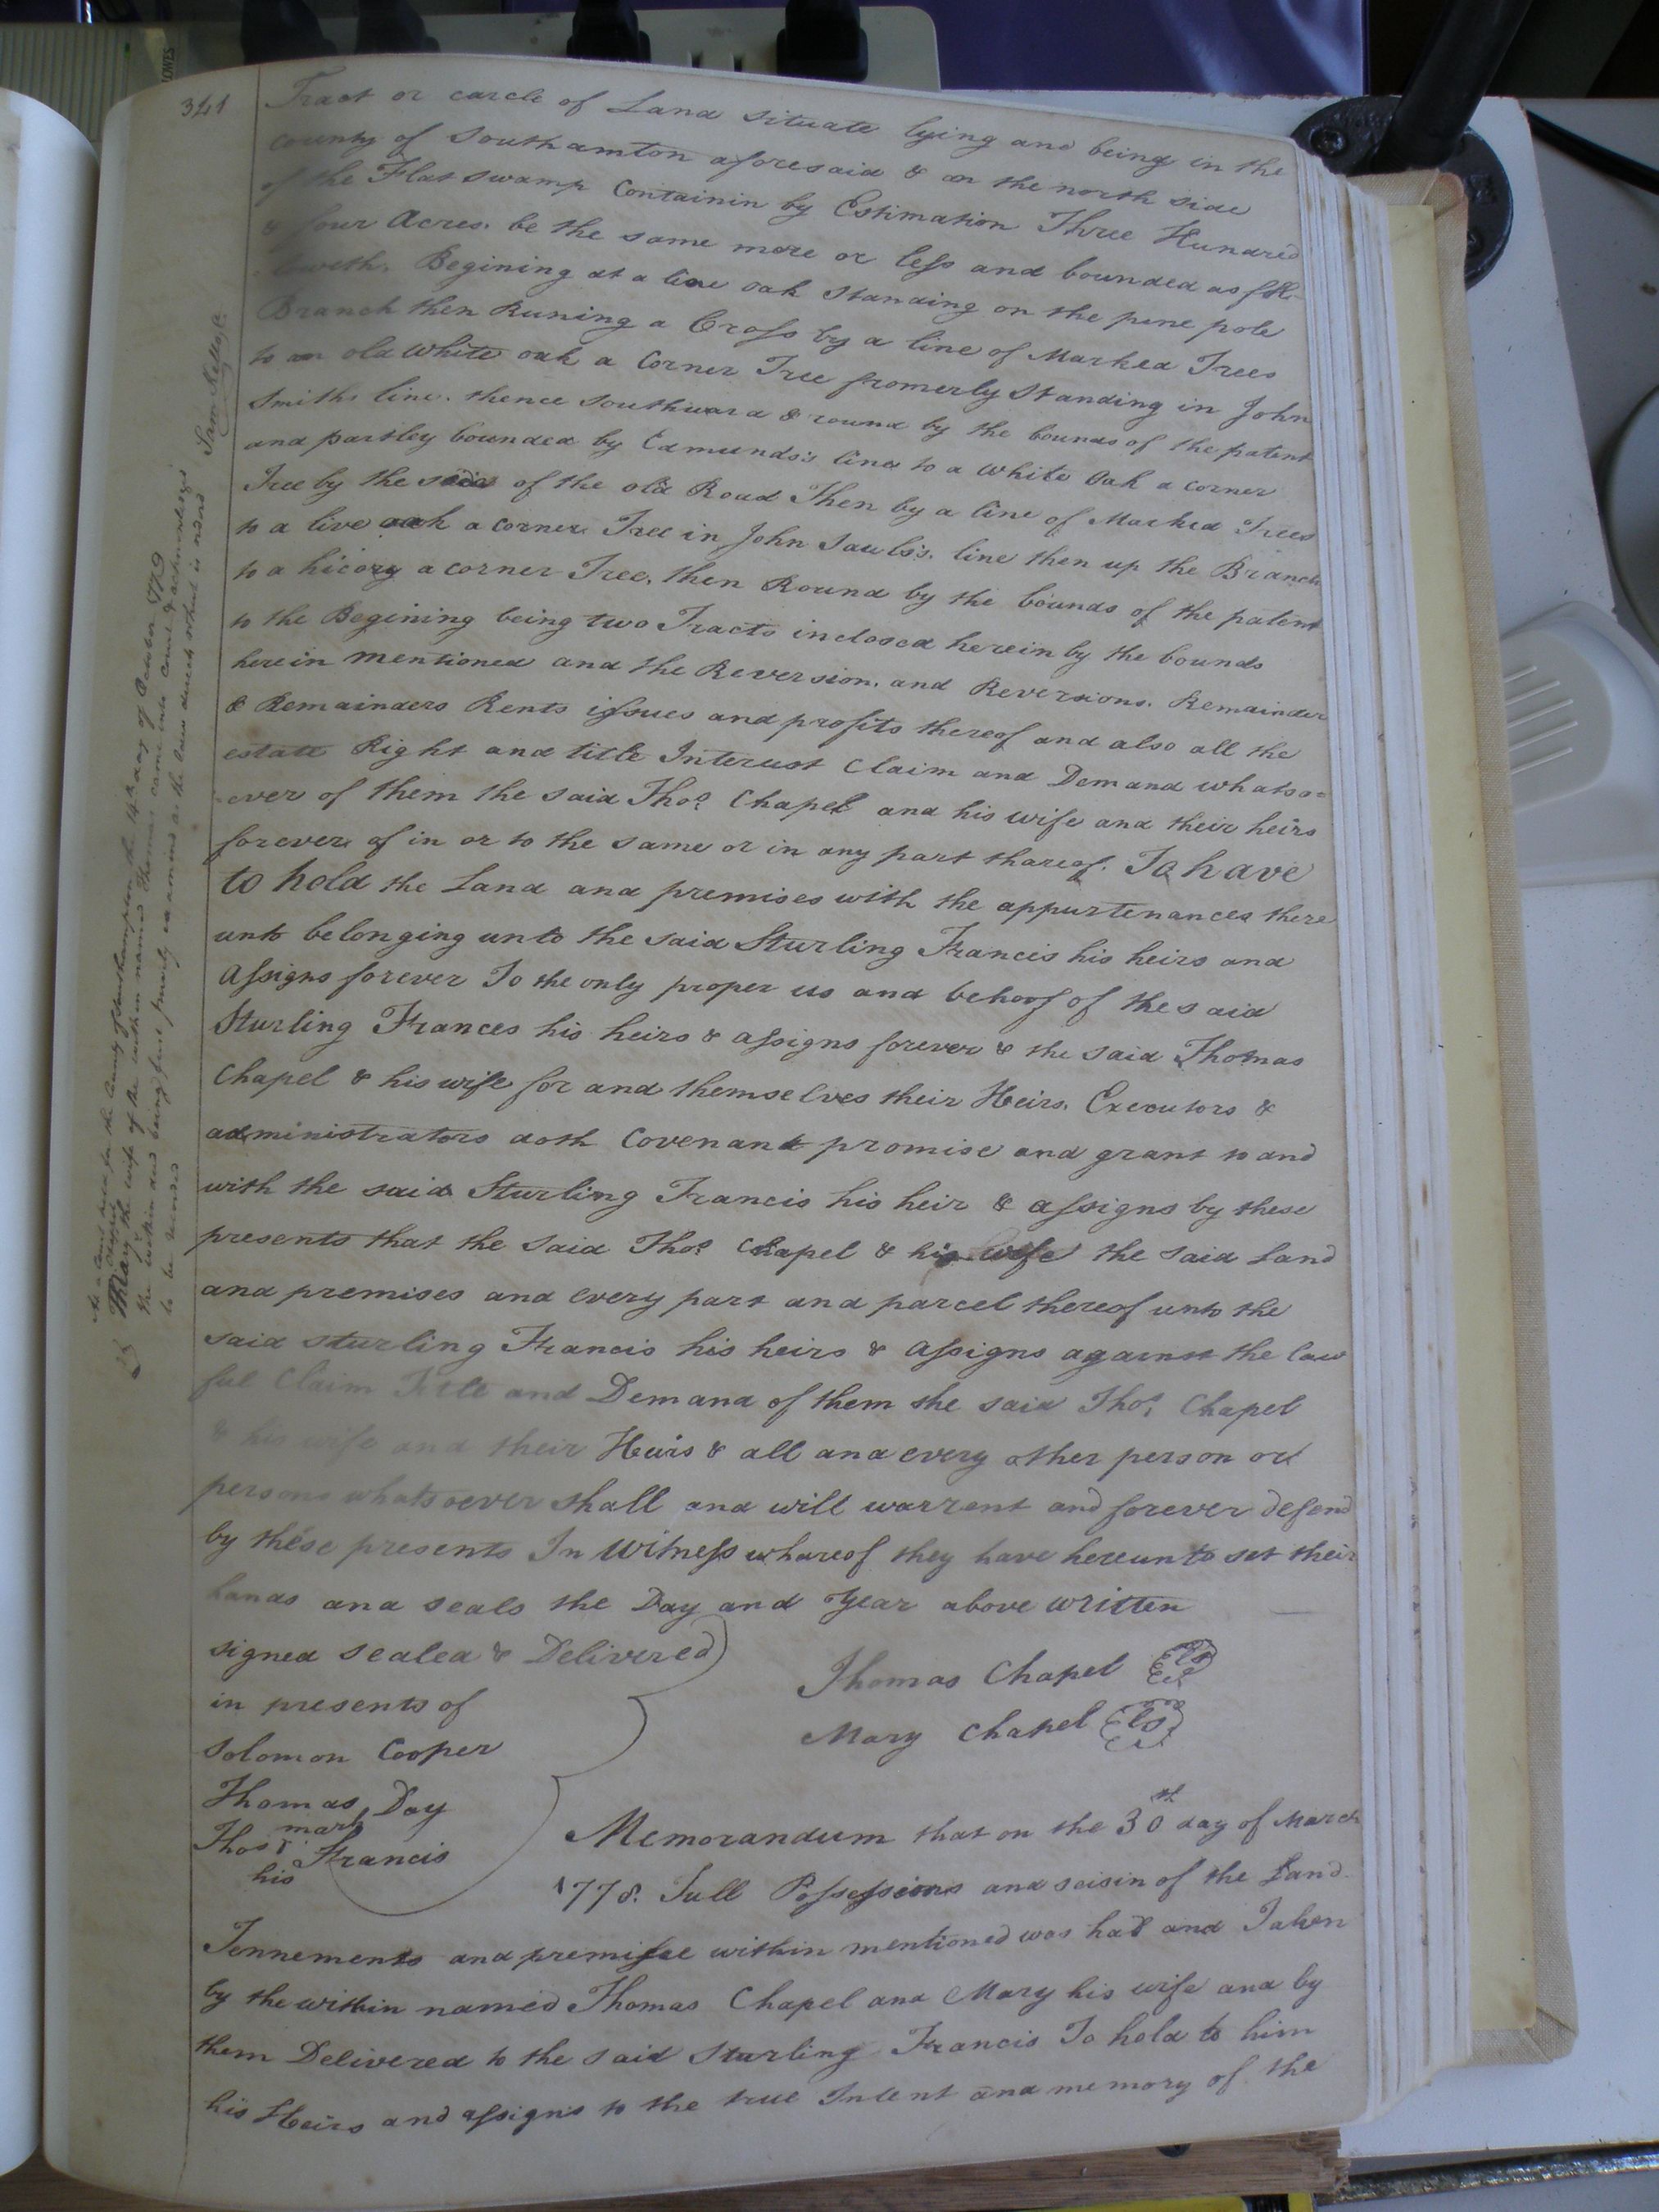 341
Tract or carcle of Land situate lying and being in the
county of Southamton aforesaid & on the north side
of the Flat swamp Containin by Estimation Three Hundred
& four Acres. be the same more or less and bounded as foll-
oweth. Begining at a live oak standing on the pine pole
Branch then Runing a Cross by a line of Marked Trees
to an old White oak a Corner Tree fromerly Standing in John
Smiths line. thence Southward & round by the bounds of the patent
and partley bounded by Edmunds's lines to a White Oak a corner
Tree by the side of the old Road Then by a line of Marked Trees
to a live oak a corner Tree in John Sauls's. line then up the Branch
to a hicory a corner Tree. then Round by the bounds of the patent
to the Begining being two Tracts inclosed herein by the bounds
herein mentioned and the Reversion. and Reversions. Remainder
& Remainders Rents issues and profits thereof and also all the
estate Right and title Interust Claim and Demand whatso=
-ever of them the said Thos. Chapel and his wife and their heirs
forever of in or to the same or in any part thareof. To have
to hold the Land and premises with the appurtenances there
unto belonging unto the said Sturling Francis his heirs and
Assigns forever To the only proper us and behoof of the said
Sturling Frances his heirs & assigns forever & the said Thomas
Chapel & his wife for and themselves their Heirs. Executors &
administrators doth Covenant promise and grant to and
with the said Sturling Francis his heir & assigns by these
presents that the said Thos. Chapel & his wife the said Land
and premises and every part and parcel thereof unto the
said sturling Francis his heirs & assigns against the law
ful Claim Title and Demand of them she said Thos. Chapel
& his wife and their Heirs & all and every other person or
persons whatsoever shall and will warrent and forever defend
by these presents In Witness whareof they have hereunto set their
hands and seals the Day and Year above written
signed sealed & Delivered
in presents of
Solomon Cooper
Thomas Day
mark
Thos Francis
his
Thomas Chapel Ls
Mary Chapel Ls
Memorandum that on the 30th day of March
1778. Full Possessions and seisin of the Land.
Tennements and premisse within mentioned was had and Taken
by the within named Thomas Chapel and Mary his wife and by
them Delivered to the said Sturling Francis To hold to him
his Heirs and assigns to the true Intent and memory of the
At a Court held for the County of Southampton the 14th day of October 1779
Mary Chapel the wife of the within named Thomas came into Court & acknowledged
the within and being first privily examined as the Law directs what is
to be
Sam Kello C.
LOWES